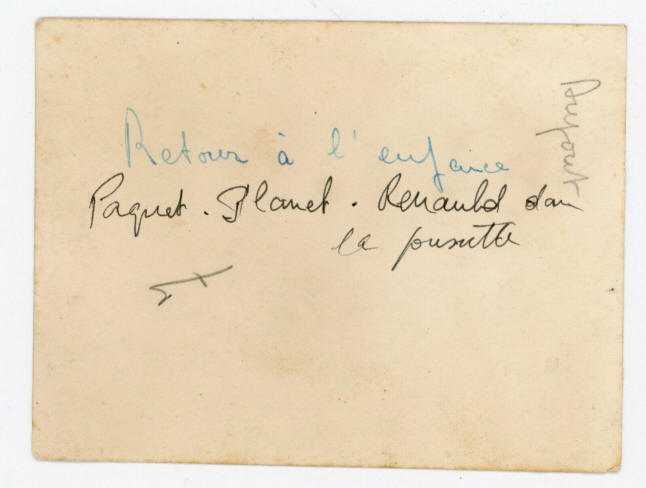 Retour à l'enfance
Paquet. Planet. Renauld dans
la poussette
Dufour